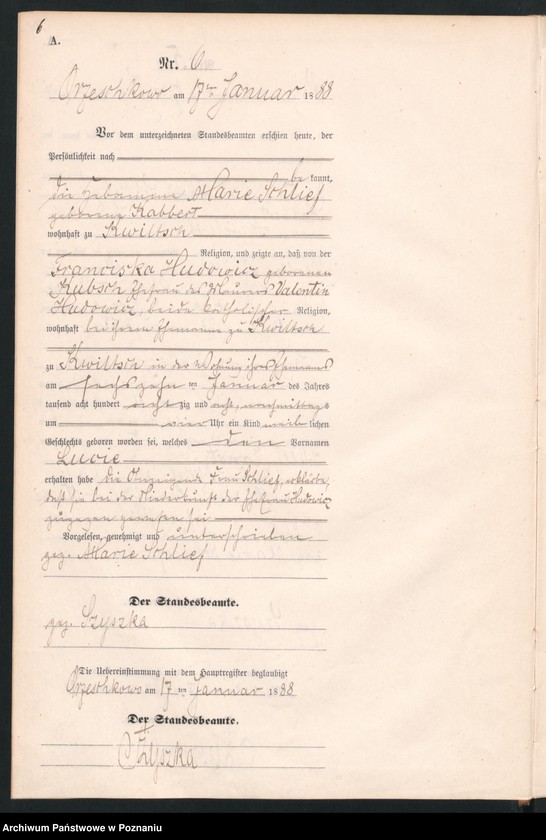 6
A.
Nr. 6
Orzeschkowo am 17ten Januar 1888
Vor dem unterzeichneten Standesbeamten erschien heute, der
Persönlichkeit nach
bekannt,
die Hebamme Marie Schlief
geborene Kabbert
wohnhaft zu Kwiltsch
Religion, und zeigte an, daß von der
Franciska Hudowicz geborenen
Kubsch Ehefrau des Maurers Valentin
Hudowicz, beide katholischer Religion,
wohnhaft bei ihrem Ehemanne zu Kwiltsch
zu Kwiltsch in der Wohnung ihres Ehemanns
am sechszehnten Januar des Jahres
tausend acht hundert achtzig und acht, nachmittags
um vier Uhr ein Kind weiblichen
Geschlechts geboren worden sei, welches den Vornamen
Lucie
erhalten habe die Anzeigende Frau Schlief, erklärte,
daß sie bei der Niederkunft der Ehefrau Hudowicz
zugegen gewesen sei
Vorgelesen, genehmigt und unterschrieben
gez. Marie Schlief
Der Standesbeamte.
gez. Szyszka
Die Uebereinstimmung mit dem Hauptregister beglaubigt
Orzeschkowo am 17ten Januar 1888
Der Standesbeamte.
Szyszka
Archiwum Państwowe w Poznaniu